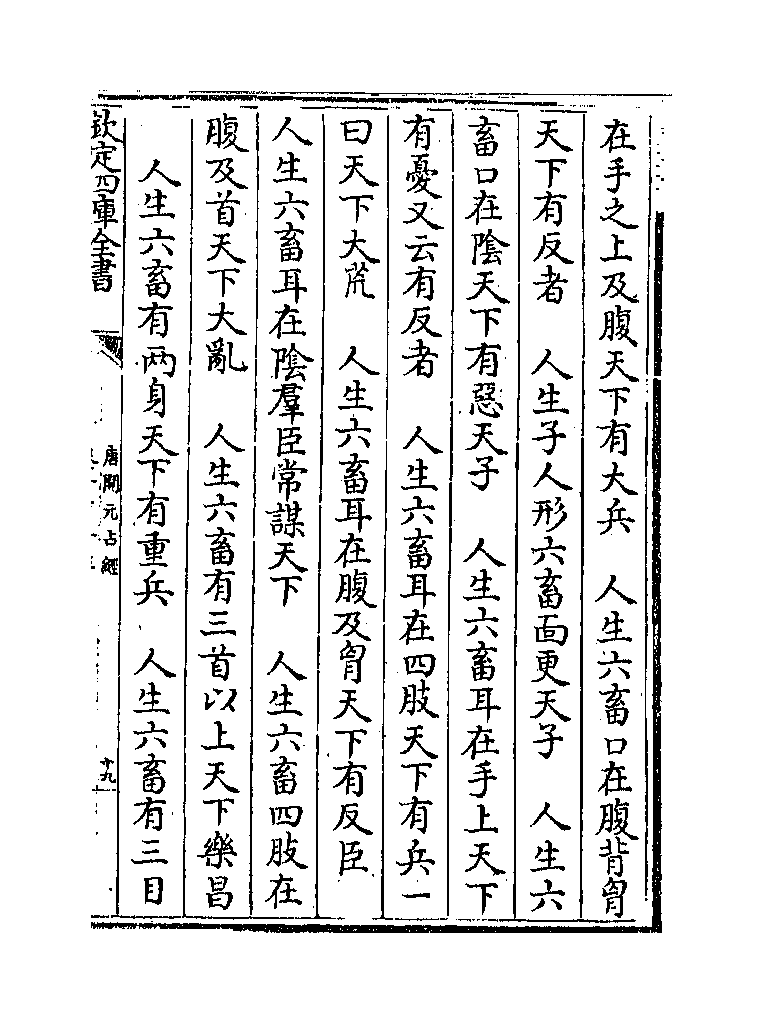 在手之上及腹天下有大兵　人生六畜口在腹背胷
天下有反者　人生子人形六畜面更天子　人生六
畜口在陰天下有惡天子　人生六畜耳在手上天下
有憂又云有反者　人生六畜耳在四肢天下有兵一
曰天下大荒　人生六畜耳在腹及胷天下有反臣
人生六畜耳在陰羣臣常謀天下　人生六畜四肢在
腹及首天下大亂　人生六畜有三首以上天下樂昌
人生六畜有两身天下有重兵　人生六畜有三目
欽定四庫全書
唐開元占經
十九